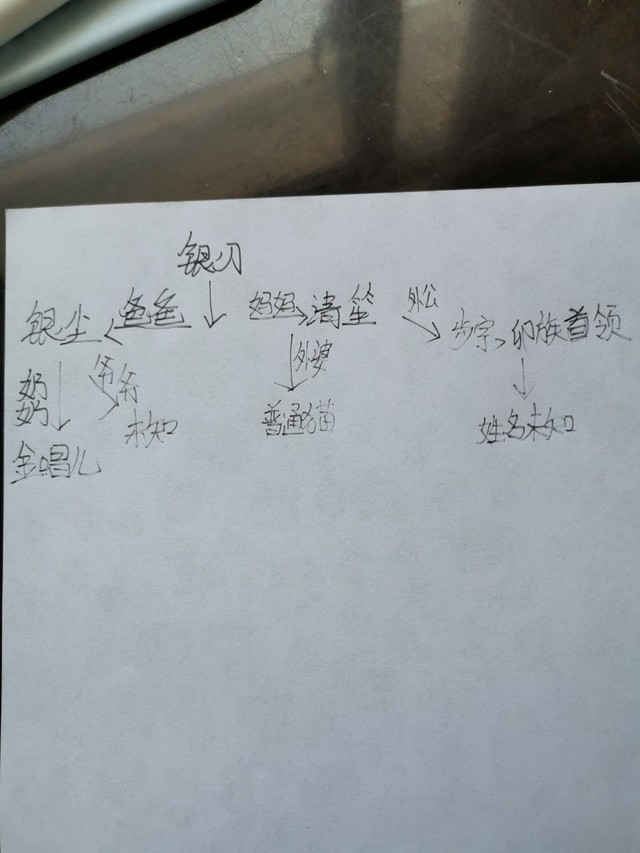 银刀
银尘 爸爸 妈妈 清 外公
步宗、卯族首领
外婆
奶奶 爷爷
未知 普通猫 姓名未知
金唱儿